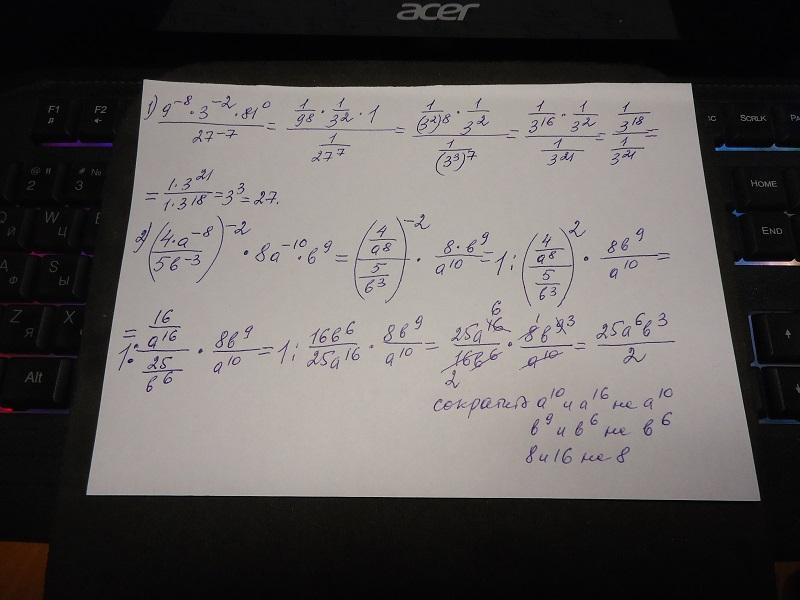 acer
F1
F2
SCRLK
HOME
END
Alt
1) 9^-8 · 3^-2 · 81^0 / 27^-7 = (1/9^8 · 1/3^2 · 1) / (1/27^7) = (1/(3^2)^8 · 1/3^2) / (1/(3^3)^7) = (1/3^16 · 1/3^2) / (1/3^21) = (1/3^18) / (1/3^21) =
= 1·3^21 / 1·3^18 = 3^3 = 27.
2) (4·a^-8 / 5b^-3)^-2 · 8a^-10 · b^9 = ((4/a^8) / (5/b^3))^-2 · 8·b^9 / a^10 = 1 : ((4/a^8) / (5/b^3))^2 · 8b^9 / a^10 =
= 1 : (16/a^16) / (25/b^6) · 8b^9 / a^10 = 1 : 16b^6 / 25a^16 · 8b^9 / a^10 = 25a^16 6 / 16b^6 2 · 8 1 b^9 3 / a^10 = 25a^6b^3 / 2
сократить a^10 и a^16 на a^10
b^9 и b^6 на b^6
8 и 16 на 8